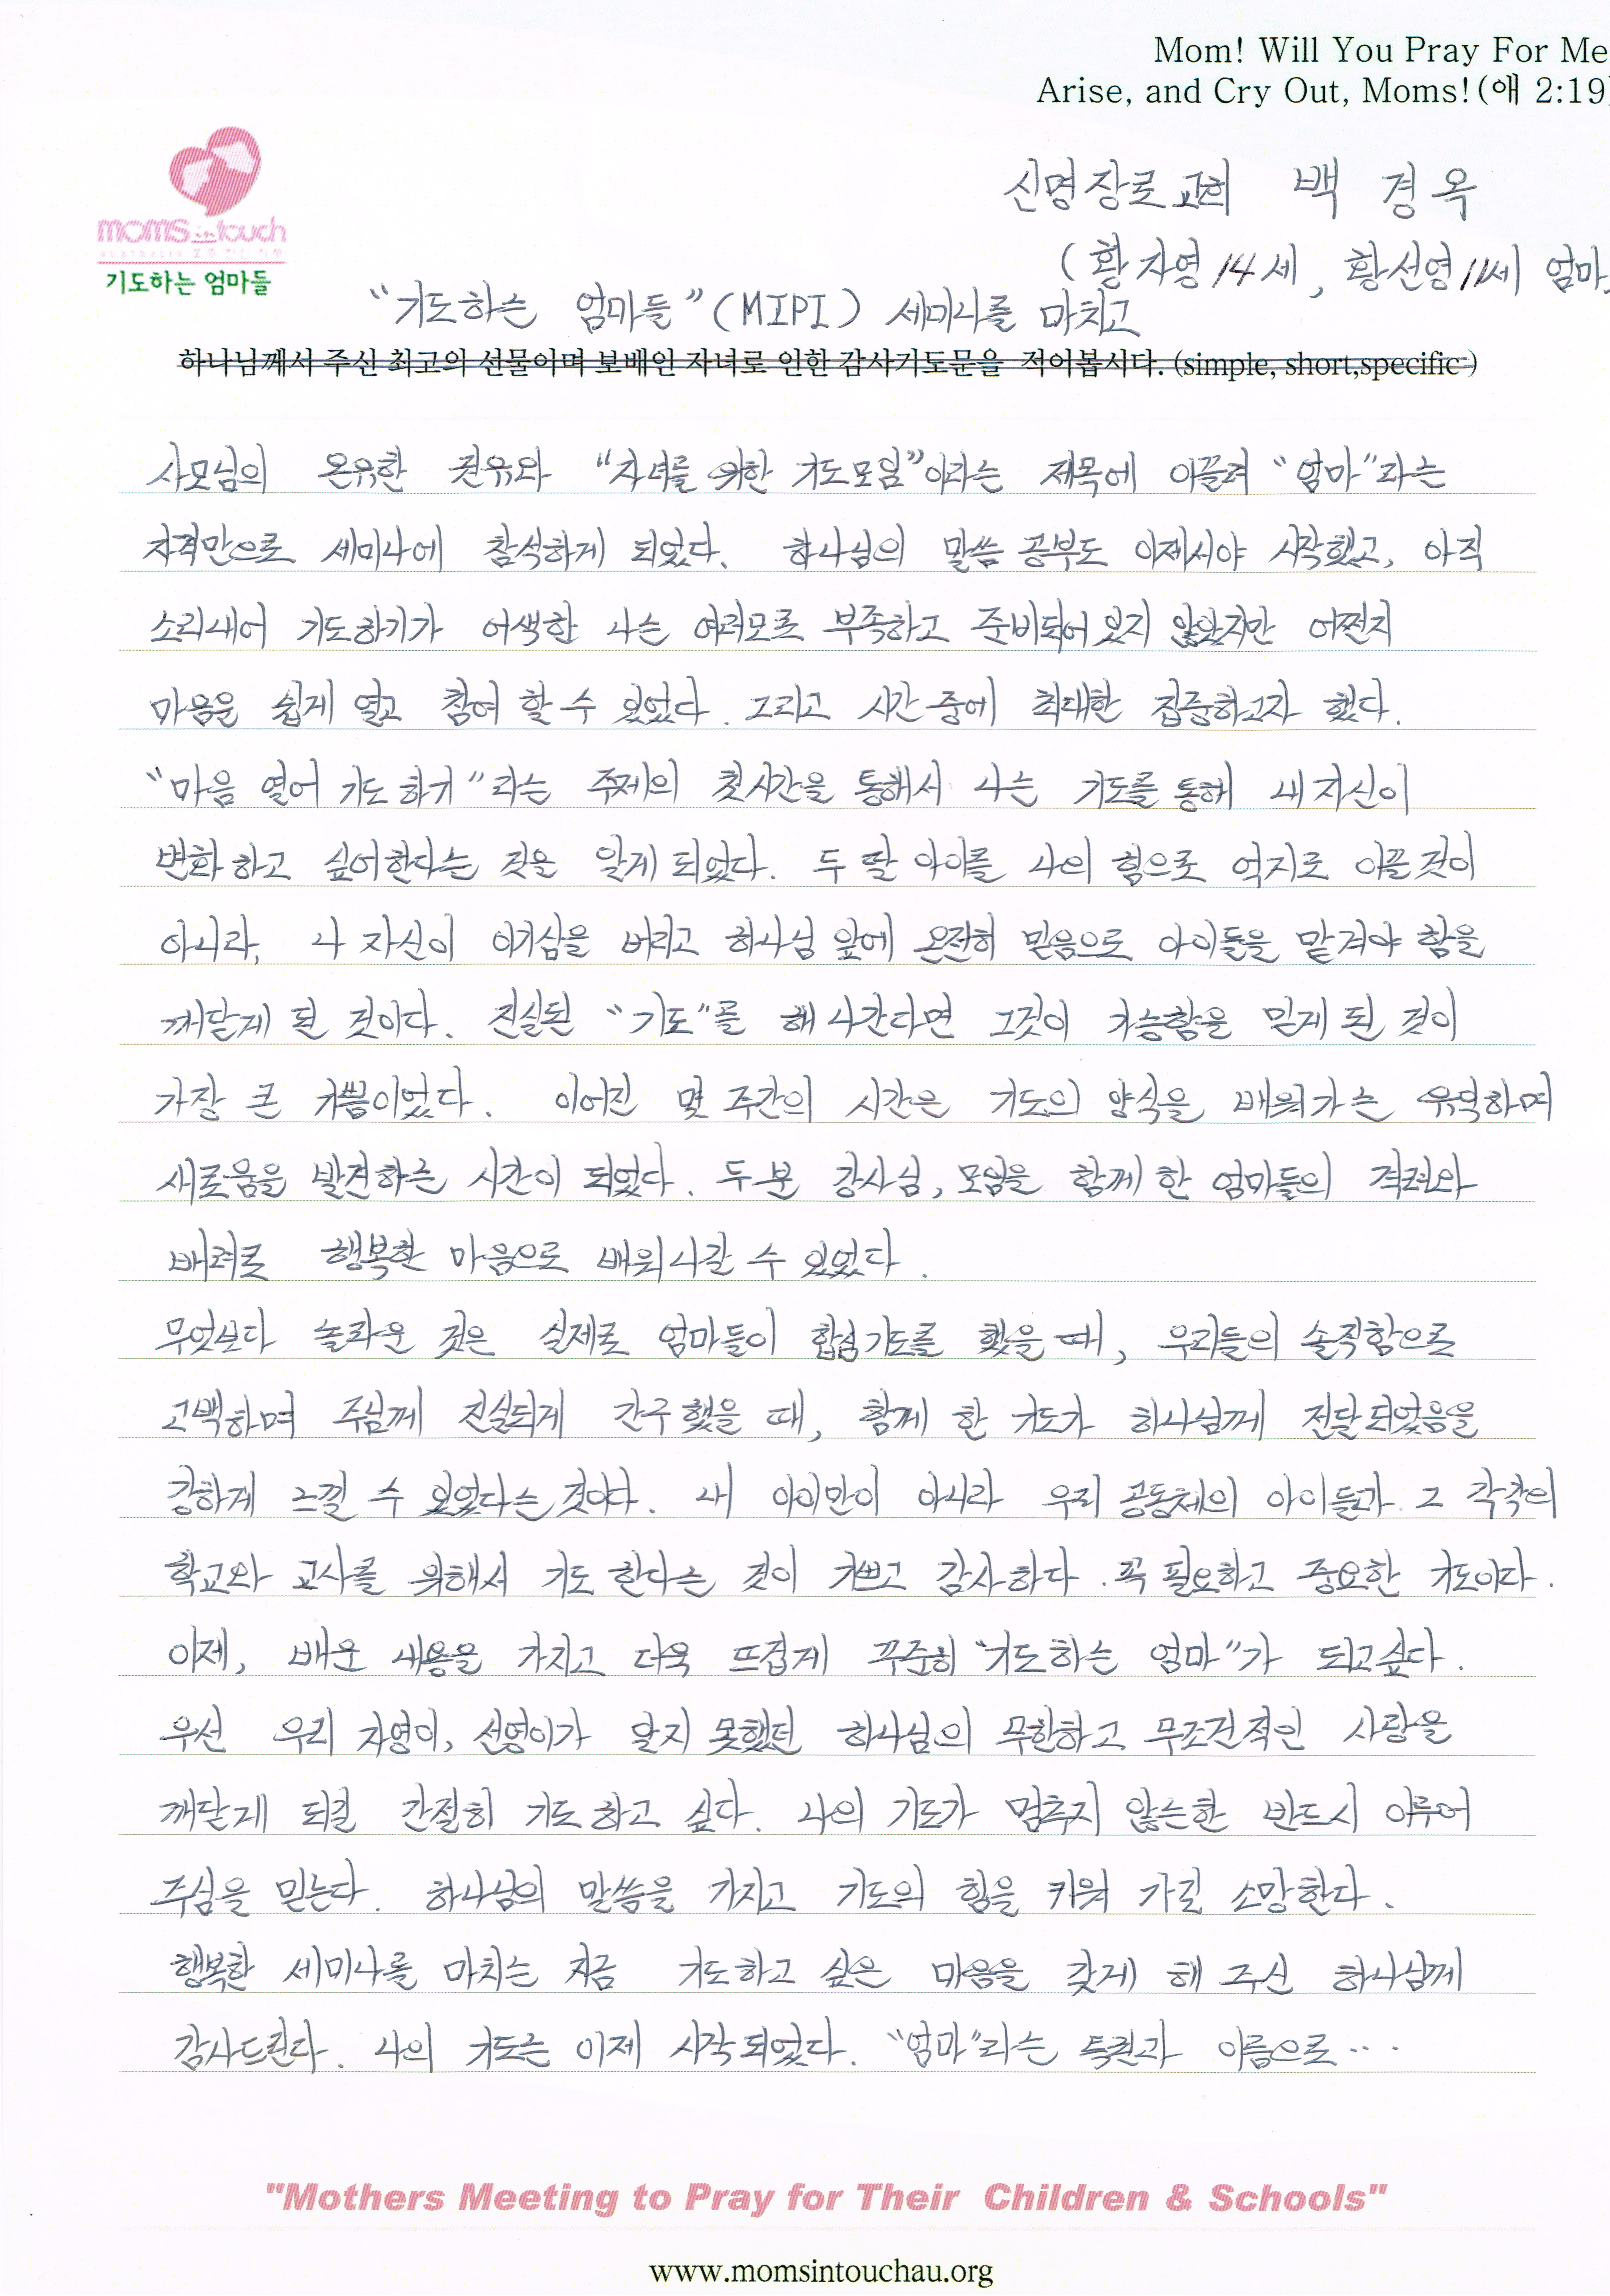 Mom! Will You Pray For Me
Arise, and Cry Out, Moms!(애 2:19)
moms in touch
AUSTRALIA
기도하는 엄마들
신명장로교회 백 경 옥
(황자영 14세, 황선영 11세 엄마)
"기도하는 엄마들"(MIPI) 세미나를 마치고
하나님께서 주신 최고의 선물이며 보배인 자녀로 인한 감사기도문을 적어봅시다. (simple, short,specific )
사모님의 온유한 권유와 "자녀를 위한 기도모임"이라는 제목에 이끌려 "엄마"라는
자격만으로 세미나에 참석하게 되었다. 하나님의 말씀 공부도 이제서야 시작했고, 아직
소리내어 기도하기가 어색한 나는 여러모로 부족하고 준비되어 있지 않았지만 어쩐지
마음을 쉽게 열고 참여 할 수 있었다. 그리고 시간 중에 최대한 집중하고자 했다.
"마음 열어 기도하기"라는 주제의 첫시간을 통해서 나는 기도를 통해 내 자신이
변화하고 싶어한다는 것을 알게 되었다. 두 딸 아이를 나의 힘으로 억지로 이끌것이
아니라, 나 자신이 이기심을 버리고 하나님 앞에 온전히 믿음으로 아이들을 맡겨야 함을
깨닫게 된 것이다. 진실된 "기도"를 해 나간다면 그것이 가능함을 믿게 된 것이
가장 큰 기쁨이었다. 이어진 몇 주간의 시간은 기도의 양식을 배워가는 유익하며
새로움을 발견하는 시간이 되었다. 두 분 강사님, 모임을 함께 한 엄마들의 격려와
배려로 행복한 마음으로 배워나갈 수 있었다.
무엇보다 놀라운 것은 실제로 엄마들이 합심기도를 했을 때, 우리들의 솔직함으로
고백하며 주님께 진실되게 간구했을 때, 함께 한 기도가 하나님께 전달되었음을
강하게 느낄 수 있었다는 것이다. 내 아이만이 아니라 우리 공동체의 아이들과 그 각각의
학교와 교사를 위해서 기도 한다는 것이 기쁘고 감사하다. 꼭 필요하고 중요한 기도이다.
이제, 배운 내용을 가지고 더욱 뜨겁게 꾸준히 "기도하는 엄마"가 되고싶다.
우선 우리 자영이, 선영이가 알지 못했던 하나님의 무한하고 무조건적인 사랑을
깨닫게 되길 간절히 기도하고 싶다. 나의 기도가 멈추지 않는한 반드시 이루어
주심을 믿는다. 하나님의 말씀을 가지고 기도의 힘을 키워 가길 소망한다.
행복한 세미나를 마치는 지금 기도하고 싶은 마음을 갖게 해 주신 하나님께
감사드린다. 나의 기도는 이제 시작되었다. "엄마"라는 특권과 이름으로····
"Mothers Meeting to Pray for Their Children & Schools"
www.momsintouchau.org